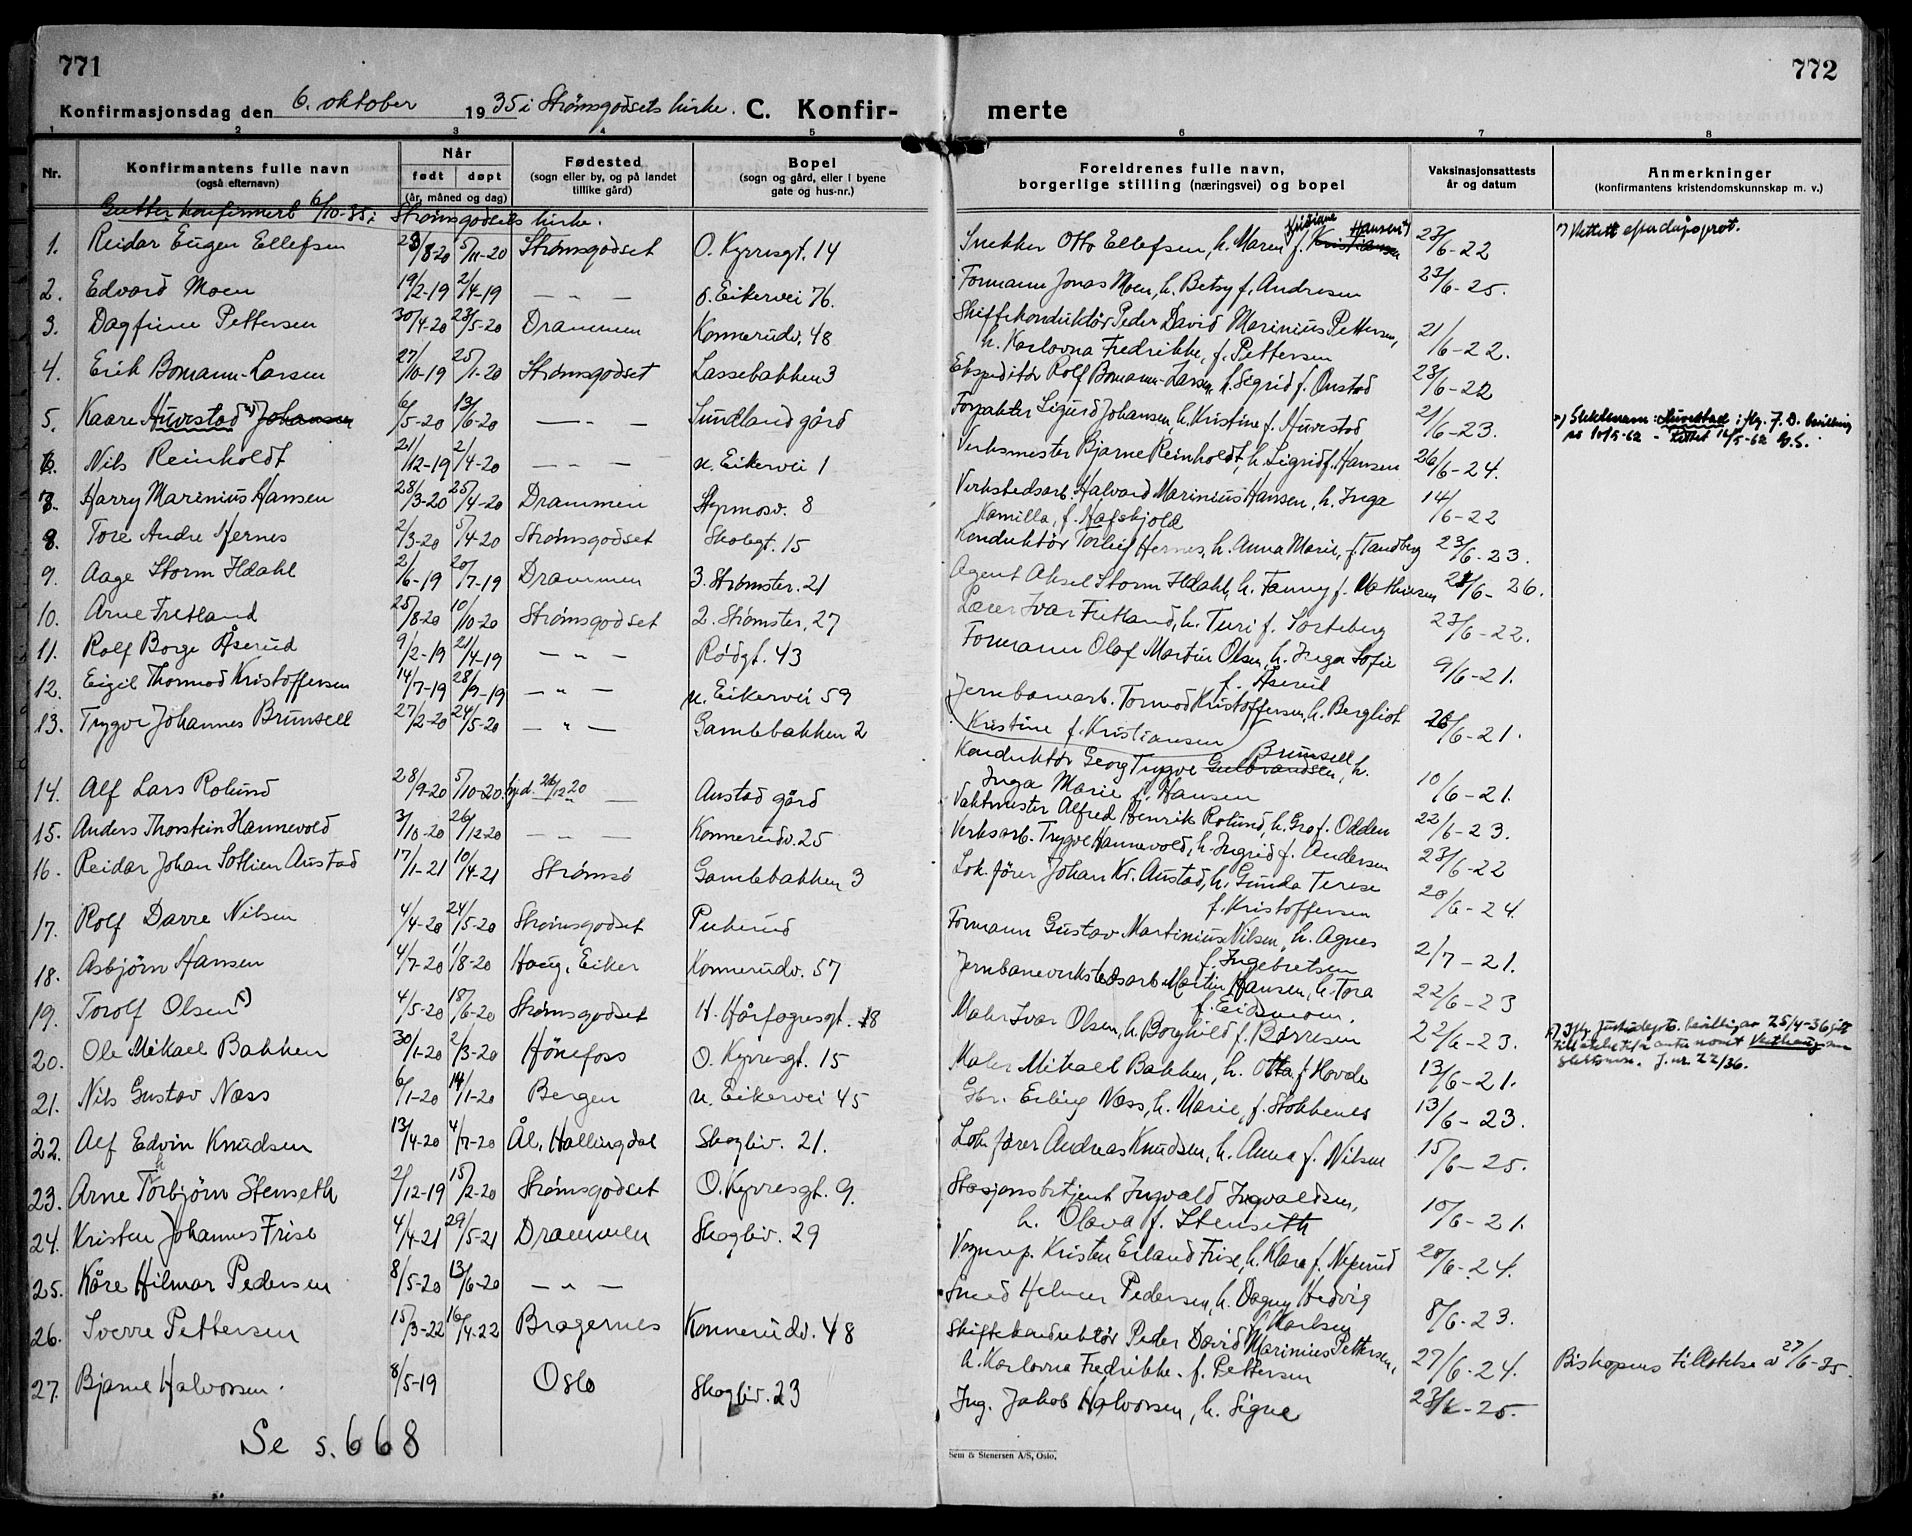 771
Konfirmasjonsdag den 6. oktober 1935 i Strømsgodsets kirke. C. Konfir-
1 2 3 4 5
Nr. Konfirmantens fulle navn (også efternavn) Når født døpt (år, måned og dag) Fødested (sogn eller by, og på landet tillike gård) Bopel (sogn og gård, eller i byene gate og hus-nr.)
Gutter konfirmert 6/10-35 i Strømsgodsets kirke.
1. Reidar Eugen Ellefsen 23/8-20 5/11-20 Strømsgodset O. Kyrresgt. 14
2. Edvard Moen 19/2-19 2/4-19 — " — ø. Eikervei 76.
3. Dagfinn Pettersen 30/4-20 23/5-20 Drammen Konnerudv. 48
4. Erik Bomann-Larsen 27/10-19 25/1-20 Strømsgodset Lassebakken 3
5. Kaare Huvstad x) Johansen 6/5-20 13/6-20 — " — Sundland gård
6. Nils Reinholdt 21/12-19 2/4-20 — " — n. Eikervei 1
7. Harry Marinius Hansen 28/3-20 25/4-20 Drammen Styrmosv. 8
8. Tore Andre Hernes 2/3-20 5/4-20 Strømsgodset Skolegt. 15
9. Aage Storm Ildahl 2/6-19 20/7-19 Drammen 3. Strømster. 21
10. Arne Fretland 25/8-20 10/10-20 Strømsgodset 2. Strømster. 27
11. Rolf Borge Åserud 9/2-19 21/4-19 — " — Rødgt. 43
12. Eigil Thormod Kristoffersen 14/7-19 28/9-19 — " — n. Eikervei 59
13. Trygve Johannes Brunsell 27/2-20 24/5-20 — " — Gamlebakken 2
14. Alf Lars Rolund 28/9-20 5/10-20 hjd. 26/12 20 — " — Austad gård
15. Anders Thorstein Hannevold 3/10-20 26/12-20 — " — Konnerudv. 25
16. Reidar Johan Sothien Austad 17/1-21 10/4-21 Strømsø Gamlebakken 3
17. Rolf Darre Nilsen 4/4-20 24/5-20 Strømsgodset Pukerud
18. Asbjørn Hansen 4/7-20 1/8-20 Haug, Eiker Konnerudv. 57
19. Torolf Olsen x) 4/5-20 18/6-20 Strømsgodset H. Hårfagresgt. 18
20. Ole Mikael Bakken 30/1-20 2/3-20 Hønefoss O. Kyrresgt. 15
21. Nils Gustav Næss 6/1-20 14/1-20 Bergen n. Eikervei 45
22. Alf Edvin Knudsen 13/4-20 4/7-20 Ål, Hallingdal Skogliv. 21.
23. Arne Thorbjørn Stenseth 21/12-19 15/2-20 Strømsgodset O. Kyrresgt. 9.
24. Kristen Johannes Frise 4/4-21 29/5-21 Drammen Skogliv. 29
25. Kåre Hilmar Pedersen 8/5-20 13/6-20 — " —
26. Sverre Pettersen 15/3-22 16/4-22 Bragernes Konnerudv. 48
27. Bjarne Halvorsen. 8/5-19 Oslo Skogliv. 23
Se s. 668
772
merte
6 7 8
Foreldrenes fulle navn, borgerlige stilling (næringsvei) og bopel Vaksinasjonsattests år og datum Anmerkninger (konfirmantens kristendomskunnskap m. v.)
Snekker Otto Ellefsen, h. Maren Kristiane f. Kristiansen Hansen x) 23/6-22 x) Rettet efter dåpsprot.
Formann Jonas Moen, h. Betsy f. Andresen 23/6-25.
Skiftekonduktør Peder David Marinius Pettersen, 21/6-22.
h. Karlovna Fredrikke, f. Pettersen
Ekspeditør Rolf Bomann-Larsen, h. Sigrid f. Onstad 23/6-22
Forpakter Sigurd Johansen, h. Kristine f. Huvstad 21/6-23. x) Slektsnavn: Huvstad i flg. J. D. bevilling
av 10/5-62 - Rettet 16/5-62
Verksmester Bjarne Reinholdt, h. Sigrid f. Hansen 26/6-24.
Verkstedsarb. Halvard Marinius Hansen, h. Inga 14/6-22
Kamilla, f. Hafskjold
Konduktør Torleif Hernes, h. Anna Marie, f. Tandberg 23/6-23.
Agent Aksel Storm Ildahl, h. Fanny f. Mathiesen 21/6-26.
Lærer Ivar Fretland, h. Turi f. Sorteberg 23/6-22.
Formann Olaf Martin Olsen, h. Inga Sofie 9/6-21.
f. Åserud
Jernbanearb. Tormod Kristoffersen, h. Bergliot 26/6-21.
Kristine f. Kristiansen
Konduktør Georg Trygve Gulbrandsen Brunsell, h. 10/6-21.
Inga Marie f. Hansen
Vaktmester Alfred Henrik Rolund, h. Gro f. Odden 22/6-23.
Verksarb. Trygve Hannevold, h. Ingrid f. Andersen 23/6-22
Lok.fører Johan Kr. Austad, h. Gunda Terese 20/6-24.
f. Kristoffersen
Formann Gustav Martinius Nilsen, h. Agnes 2/7-21.
f. Ingebretsen
Jernbaneverkstedsarb. Martin Hansen, h. Tora 22/6-23
f. Eidsmoen.
Maler Ivar Olsen, h. Borghild f. Børresen 22/6-23. x) Iflg. Justisdepts. bevilling av 25/4-36 gitt
tillatelse til å anta navnet Vesthaug som
slektsnavn. J. nr. 22/36.
Maler Mikael Bakken, h. Otta f. Hovde 13/6-21.
Gbr. Erling Næss, h. Marie, f. Stokkenes 13/6-23.
Lok.fører Andreas Knudsen, h. Anna f. Nilsen 15/6-25.
Stasjonsbetjent Ingvald Ingvaldsen, 10/6-21.
h. Olava f. Stenseth
Vognrep. Kristen Erland Frise, h. Klara f. Neperud 20/6-24.
Smed Hilmer Pedersen, h. Dagny Hedvig 8/6-23.
f. Karlsen
Skiftekonduktør Peder David Marinius Pettersen, 27/6-24. Biskopens tillatelse av 27/6-35.
h. Karlovna Fredrikke f. Pettersen
Ing. Jakob Halvorsen, h. Signe 23/6-25.
Sem & Stenersen A/S, Oslo.